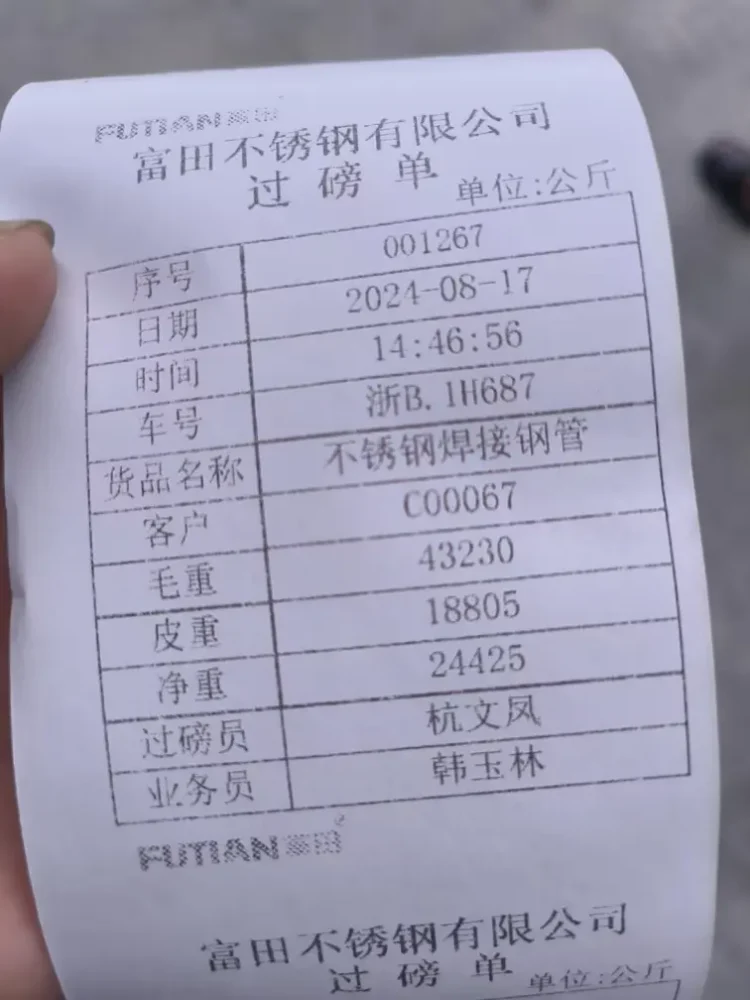 FUTIAN富田
富田不锈钢有限公司
过磅单
单位:公斤
序号 001267
日期 2024-08-17
时间 14:46:56
车号 浙B.1H687
货品名称 不锈钢焊接钢管
客户 C00067
毛重 43230
皮重 18805
净重 24425
过磅员 杭文凤
业务员 韩玉林
FUTIAN富田
富田不锈钢有限公司
过磅单
单位:公斤